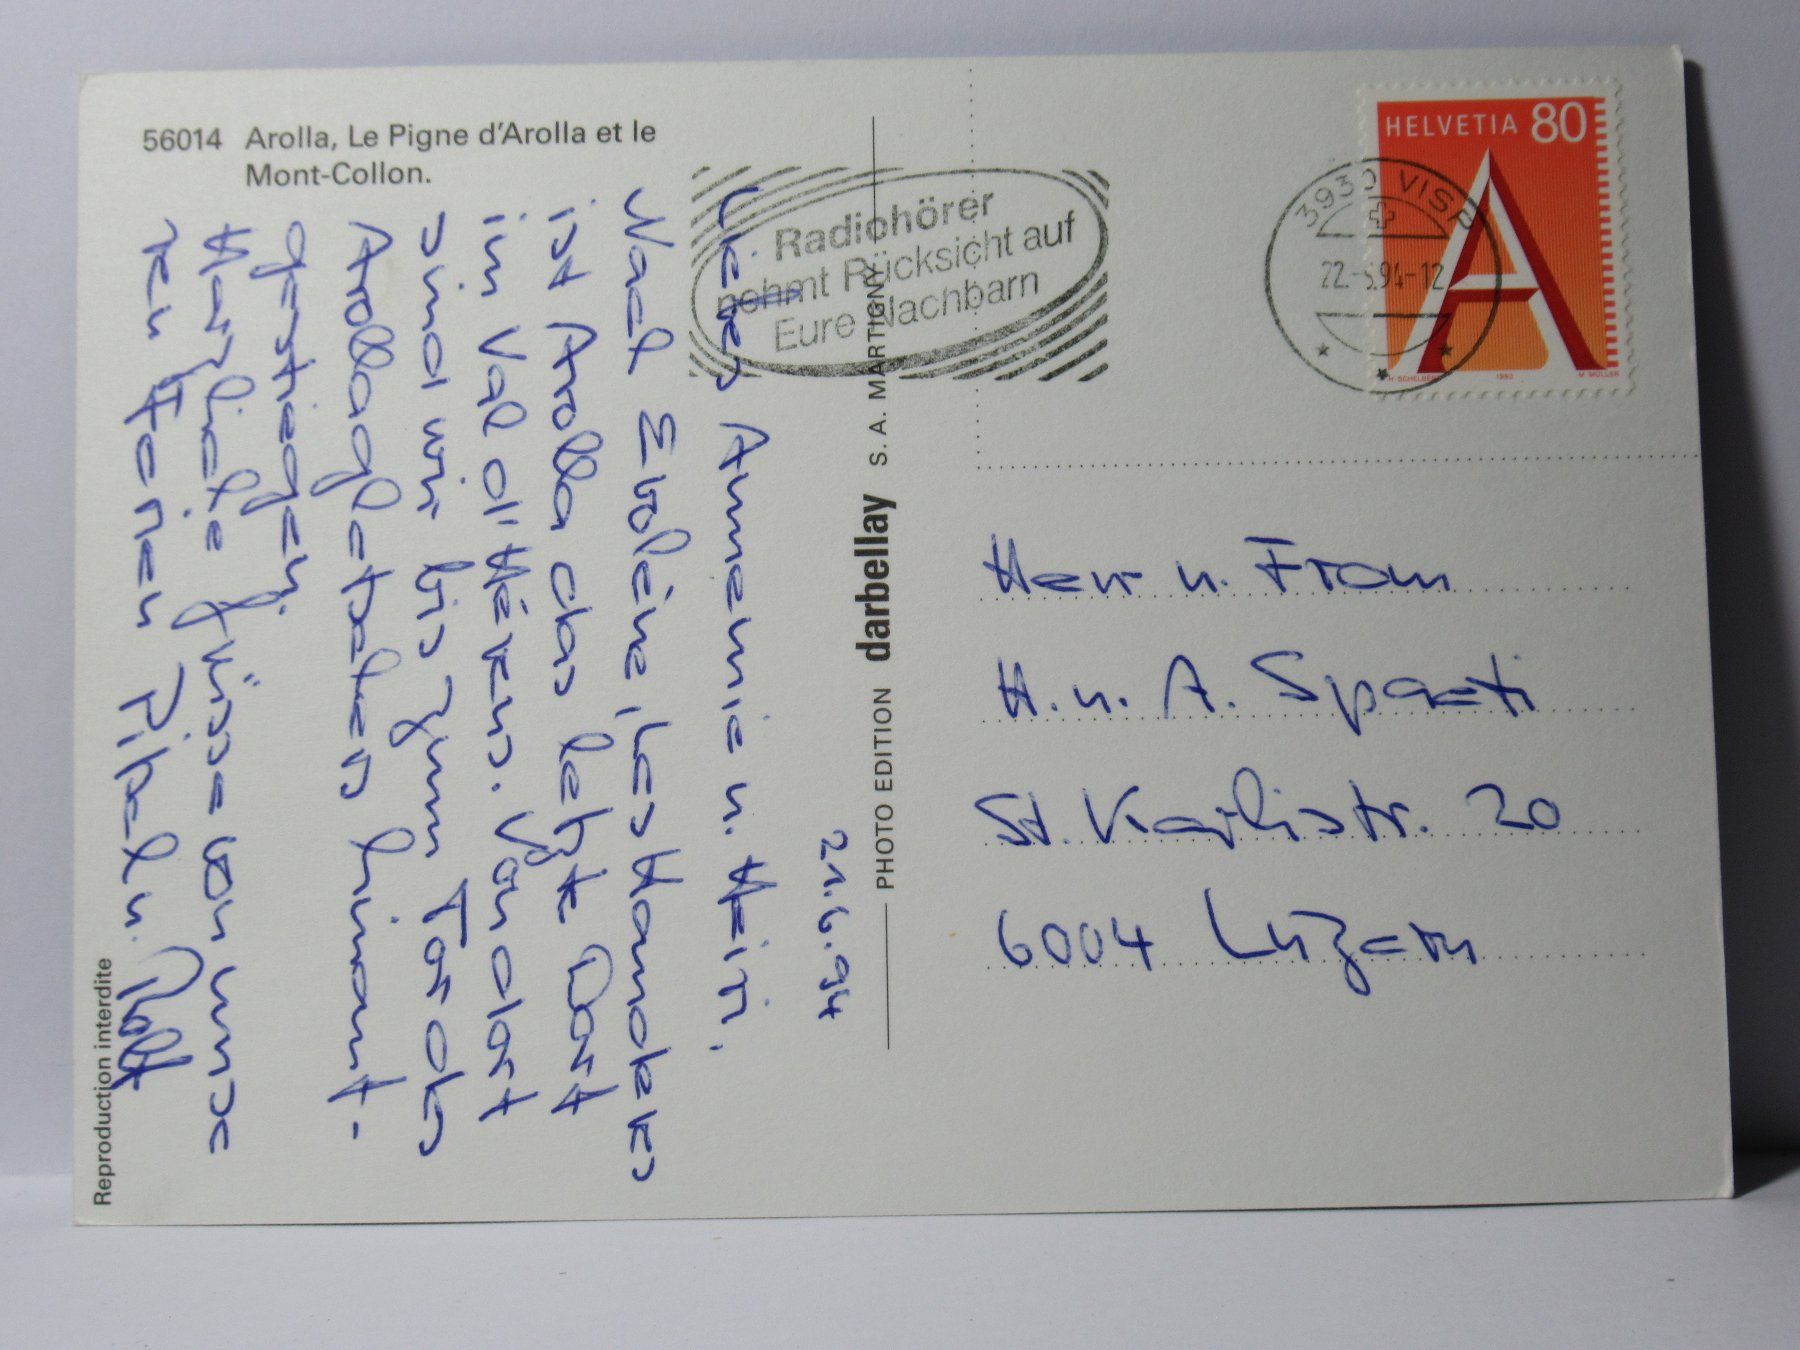 56014 Arolla, Le Pigne d'Arolla et le
Mont-Collon.
Radiohörer
nehmt Rücksicht auf
Eure Nachbarn
HELVETIA 80
3930 VISP
22.-6.94-12
1993 M. MÜLLER
21.6.94
Liebes Annemie u. Heiri.
Nach Evolène, Les Hauderes
ist Arolla das letzte Dort
im Val d'Hérens. Von dort
sind wir bis zum Tor des
Arollagletschers hinauf-
gestiegen.
Herzliche Grüsse von unse
ren Ferien
PHOTO EDITION darbellay S. A. MARTIGNY
Herr u. Frau
H. u. A. Spaeti
St. Karlistr. 20
6004 Luzern
Reproduction interdite